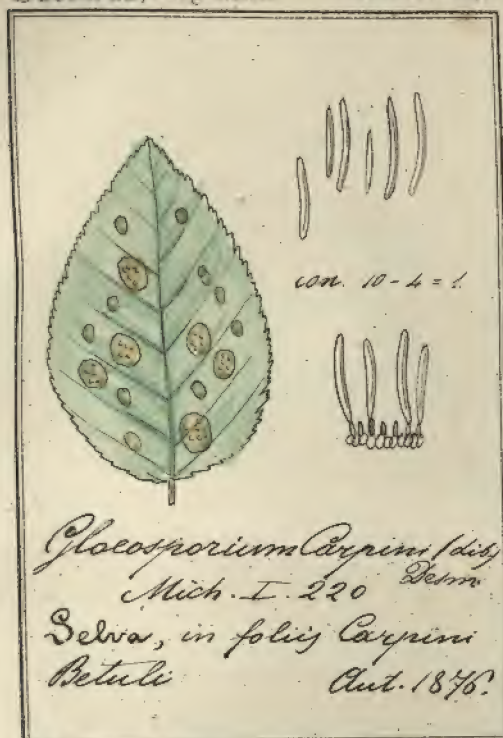 con. 10 - 4 = 1.
Gloeosporium Carpini (Lib)
Desm
Mich. I. 220
Selva, in foliis Carpini
Betuli Aut. 1876.